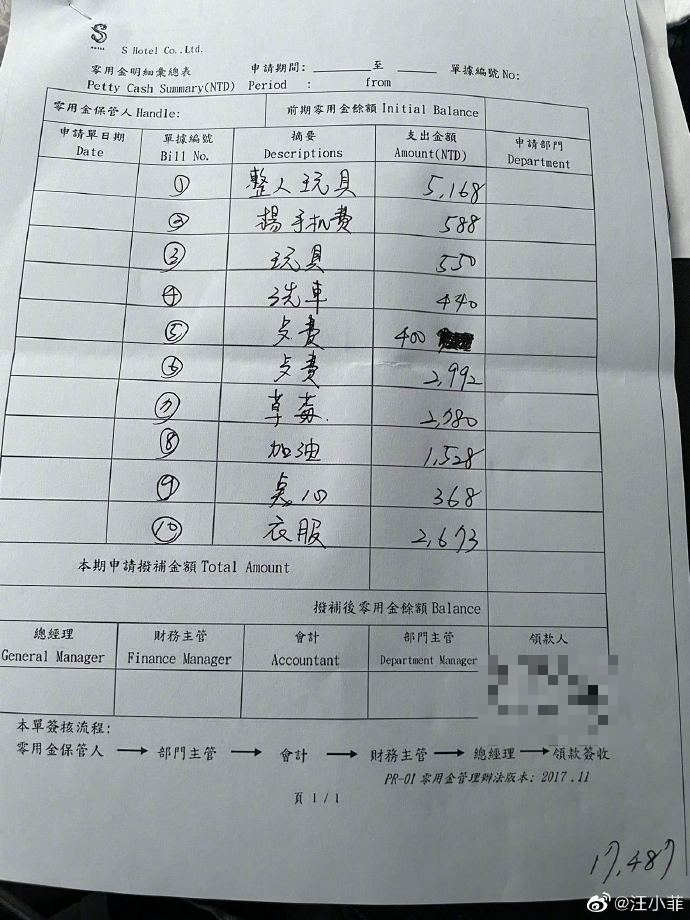 S
HOTEL
S Hotel Co.,Ltd.
零用金明細彙總表 申請期間: ____ 至 ____ 單據編號No:
Petty Cash Summary(NTD) Period : from
零用金保管人 Handle: 前期零用金餘額 Initial Balance
申請單日期 單據編號 摘要 支出金額 申請部門
Date Bill No. Descriptions Amount(NTD) Department
① 整人玩具 5,168
② 楊手机費 588
③ 玩具 550
④ 洗車 440
⑤ 費 400
⑥ 費 2,992
⑦ 草莓 2,780
⑧ 加油 1,528
⑨ 奌心 368
⑩ 衣服 2,673
本期申請撥補金額 Total Amount
撥補後零用金餘額 Balance
總經理 財務主管 會計 部門主管 領款人
General Manager Finance Manager Accountant Department Manager
本單簽核流程:
零用金保管人 → 部門主管 → 會計 → 財務主管 → 總經理 → 領款簽收
PR-01 零用金管理辦法版本: 2017.11
頁 1/1
17,487
@汪小菲